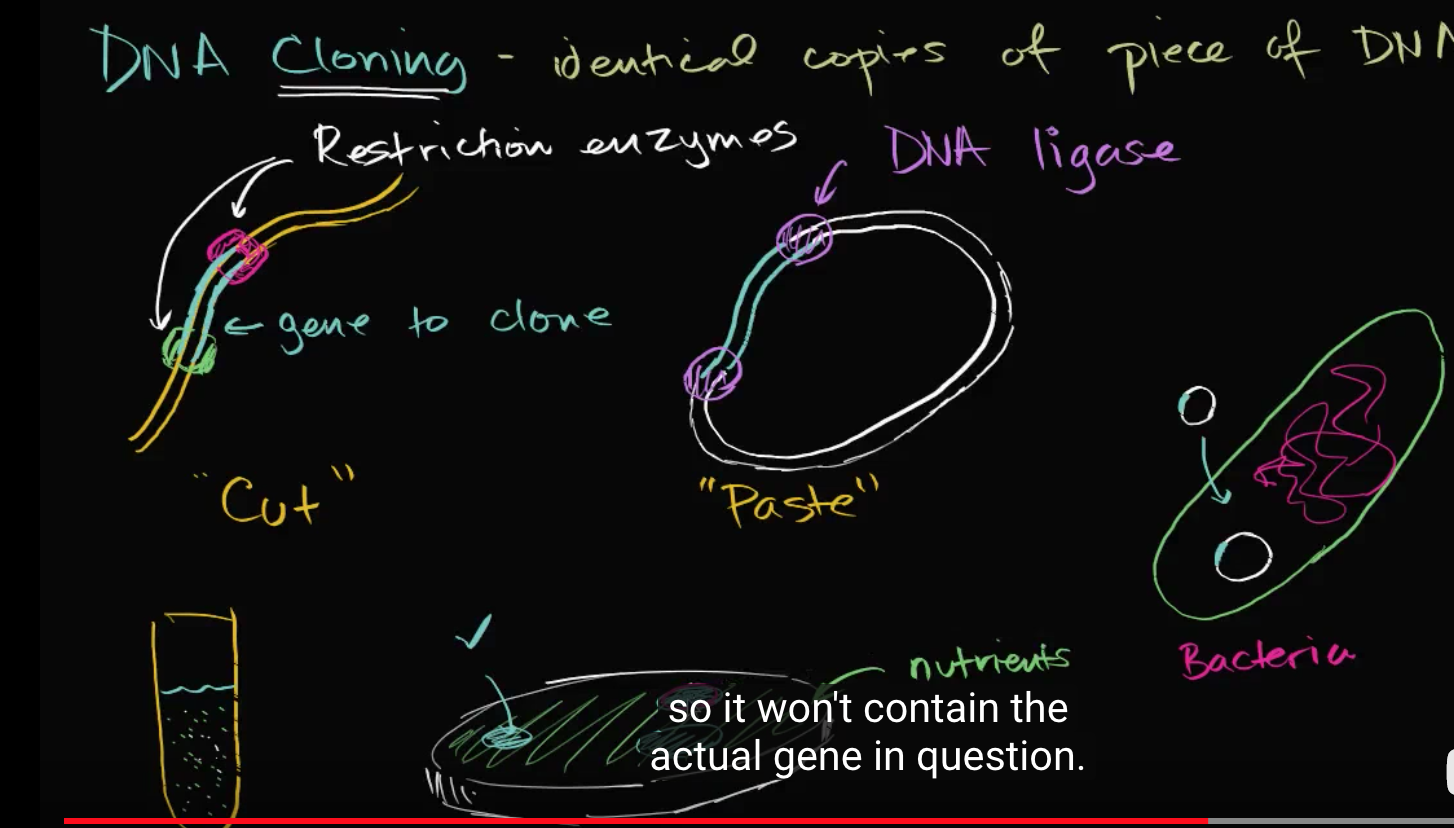 DNA Cloning - identical copies of piece of DN
Restriction enzymes
DNA ligase
← gene to clone
"Cut"
"Paste"
Bacteria
nutrients
so it won't contain the
actual gene in question.